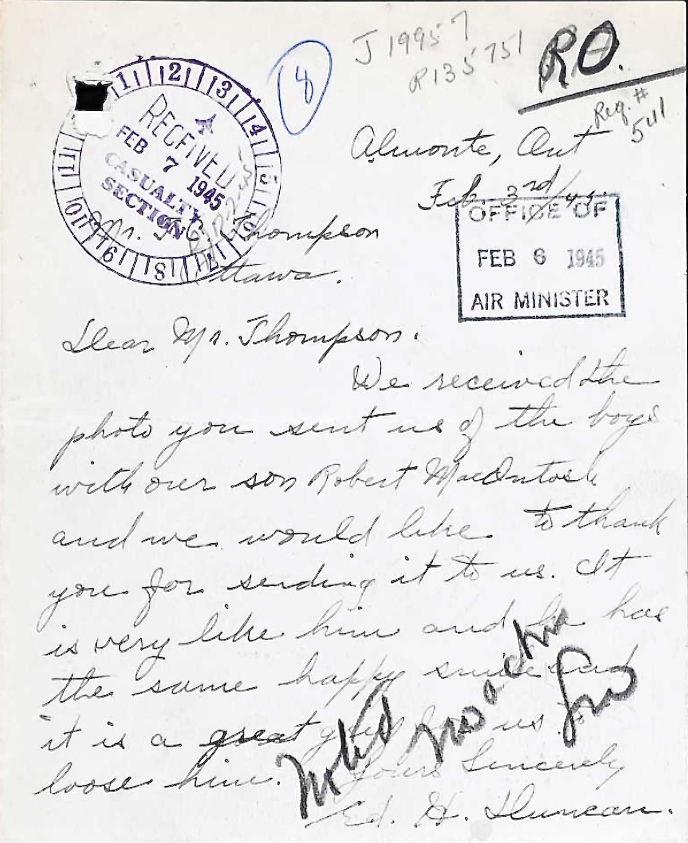 J 19957
R135751
8
RO.
Reg. #
541
RECEIVED
FEB 7 1945
CASUALTY
SECTION
1 2 3 4 5 6 7 8 9 10 11
Almonte, Ont
Feb. 3rd/45.
OFFICE OF
FEB 6 1945
AIR MINISTER
Mr. Thompson
Ottawa.
Dear Mr. Thompson.
We received the
photo you sent us of the boys
with our son Robert MacIntosh
and we would like to thank
you for sending it to us. It
is very like him and he has
the same happy smile and
it is a great us to
loose him. Yours Sincerely
Ed. H. Duncan.
Noted
no action